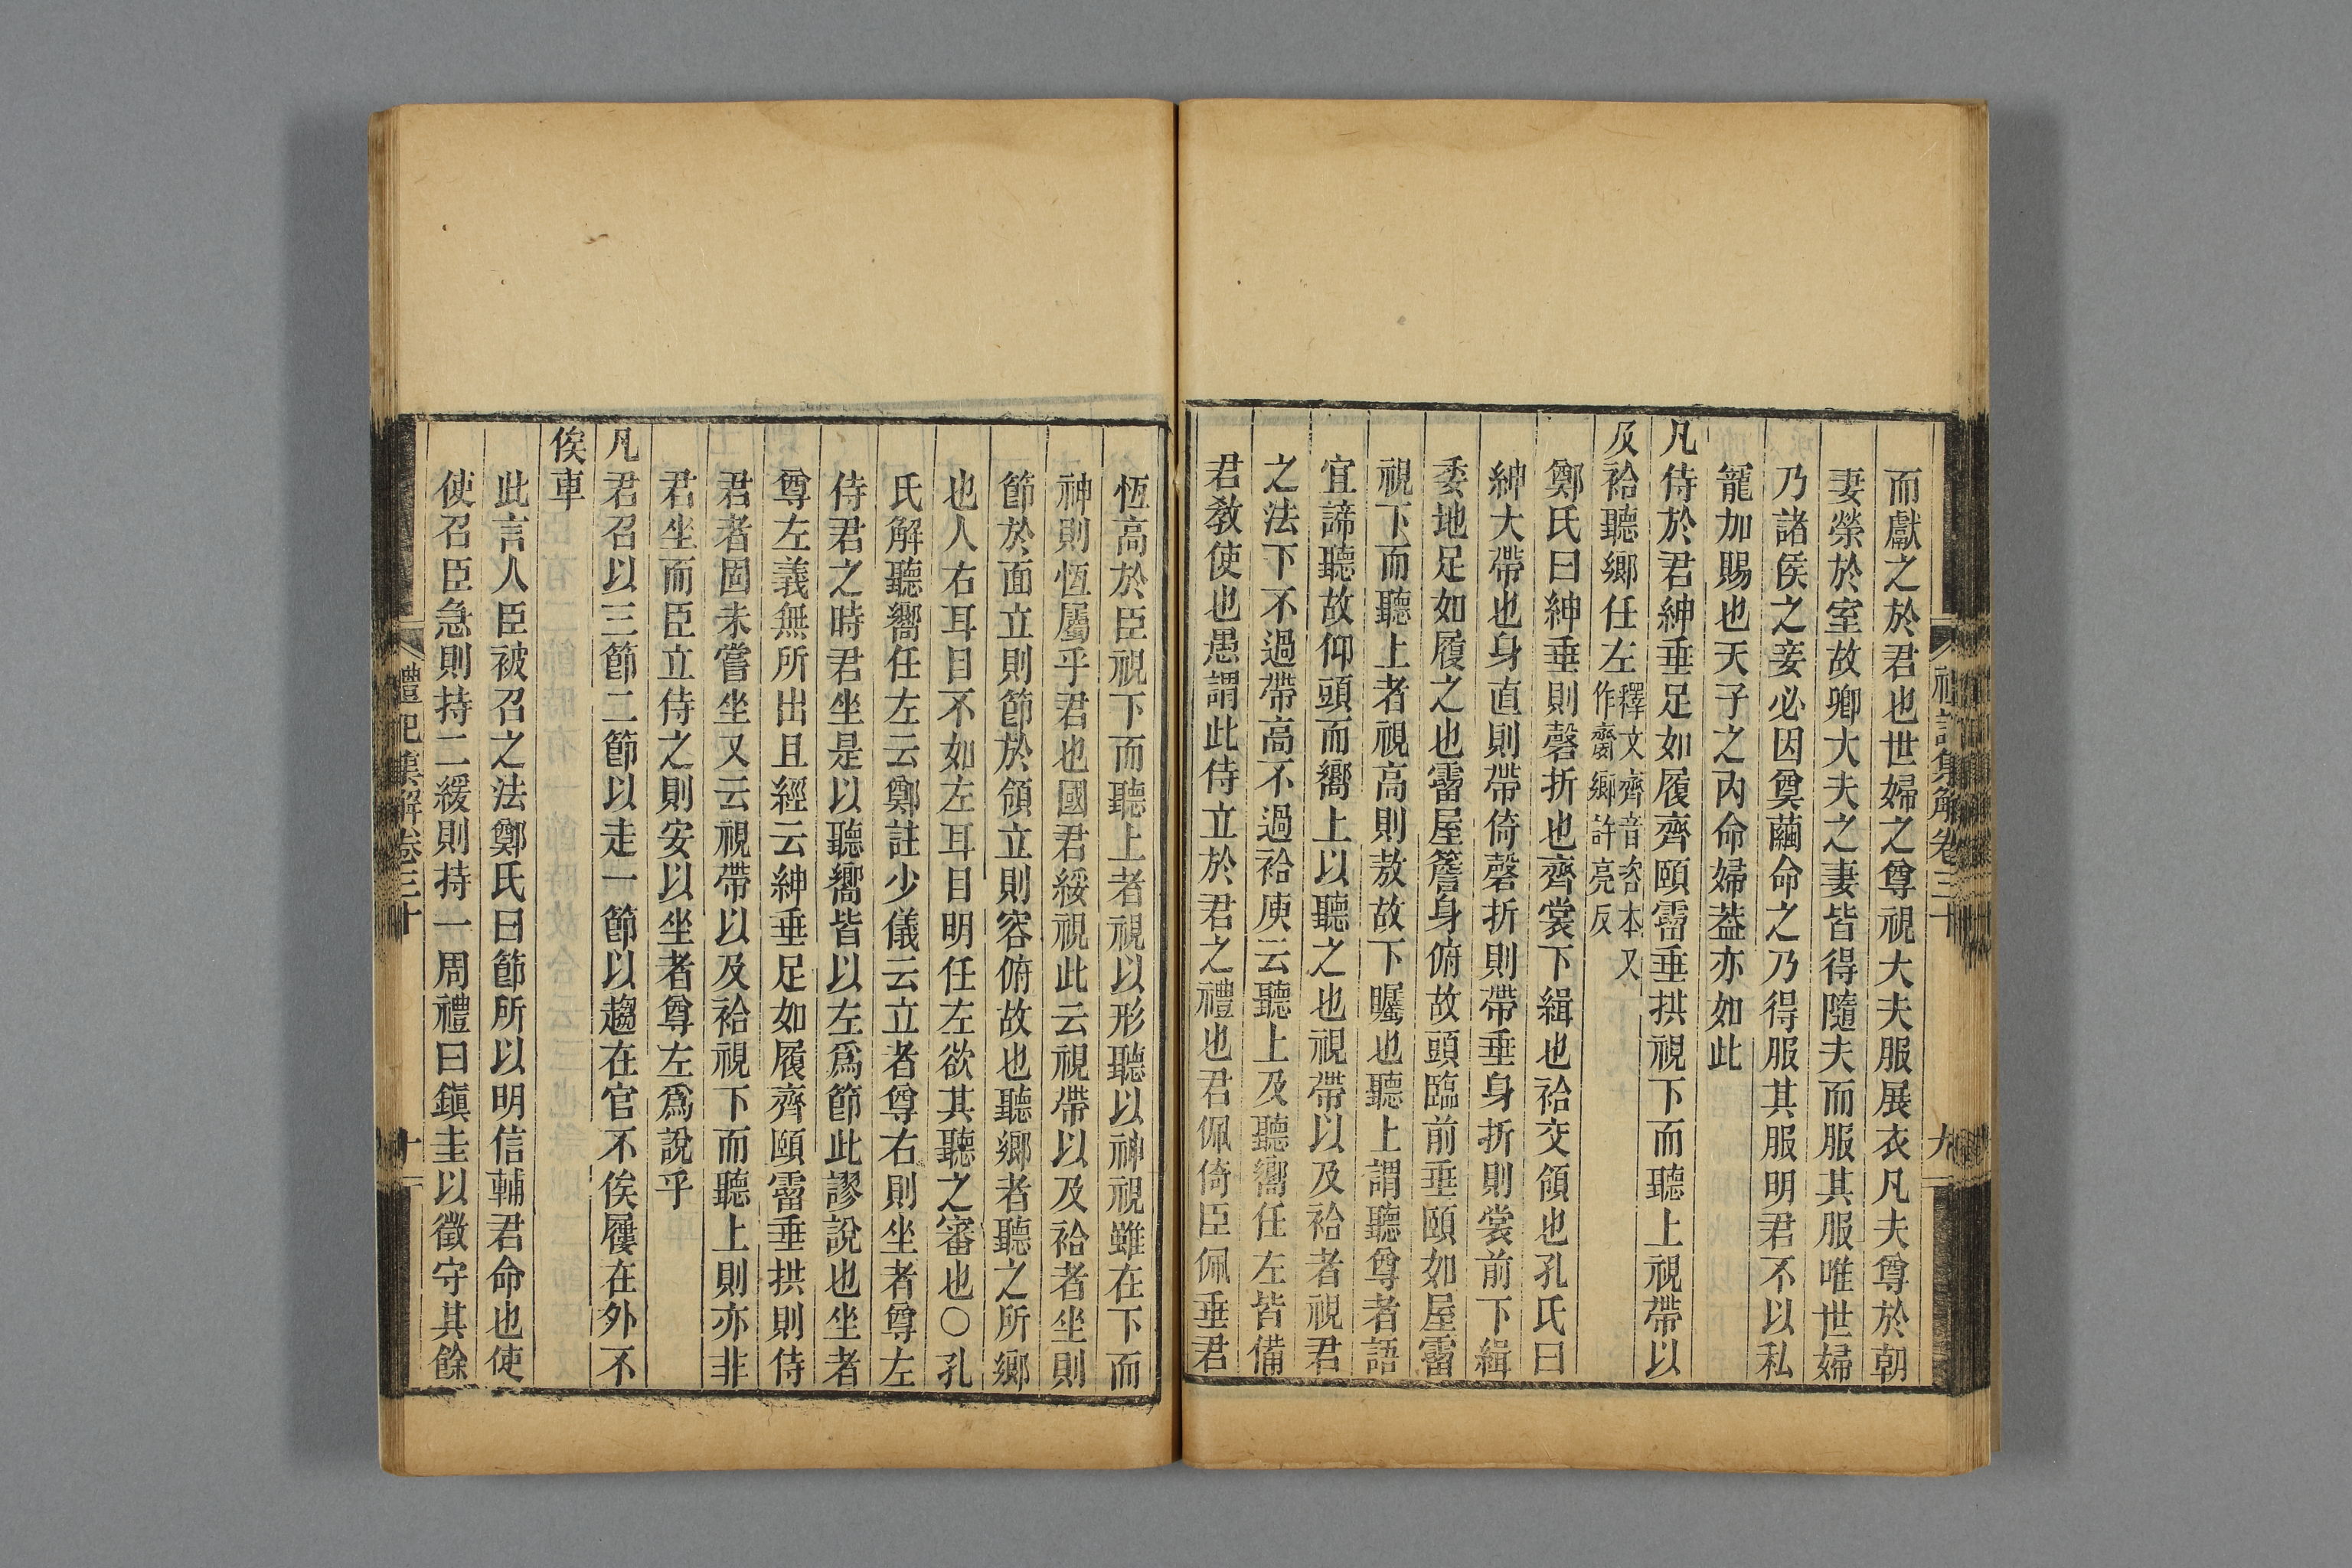 而獻之於君也世婦之尊視大夫服展衣凡夫尊於朝
妻榮於室故卿大夫之妻皆得隨夫而服其服唯世婦
乃諸侯之妾必因奠繭命之乃得服其服明君不以私
寵加賜也天子之內命婦葢亦如此
凡侍於君紳垂足如履齊頤霤垂拱視下而聽上視帶以
及袷聽鄉任左釋文齊音咨本又作齌鄉許亮反
鄭氏曰紳垂則磬折也齊裳下緝也袷交領也孔氏曰
紳大帶也身直則帶倚磬折則帶垂身折則裳前下緝
委地足如履之也霤屋簷身俯故頭臨前垂頤如屋霤
視下而聽上者視高則敖故下矚也聽上謂聽尊者語
宜諦聽故仰頭而嚮上以聽之也視帶以及袷者視君
之法下不過帶高不過袷庾云聽上及聽嚮任左皆備
君敎使也愚謂此侍立於君之禮也君佩倚臣佩垂君
恆高於臣視下而聽上者視以形聽以神視雖在下而
神則恆屬乎君也國君綏視此云視帶以及袷者坐則
節於面立則節於領立則容俯故也聽鄉者聽之所鄉
也人右耳目不如左耳目明任左欲其聽之審也○孔
氏解聽嚮任左云鄭註少儀云立者尊右則坐者尊左
侍君之時君坐是以聽嚮皆以左爲節此謬說也坐者
尊左義無所出且經云紳垂足如履齊頤霤垂拱則侍
君者固未嘗坐又云視帶以及袷視下而聽上則亦非
君坐而臣立侍之則安以坐者尊左爲說乎
凡君召以三節二節以走一節以趨在官不俟屨在外不
俟車
此言人臣被召之法鄭氏曰節所以明信輔君命也使
使召臣急則持二緩則持一周禮曰鎭圭以徵守其餘
禮記集解卷三十
十
禮記集解卷三十
九